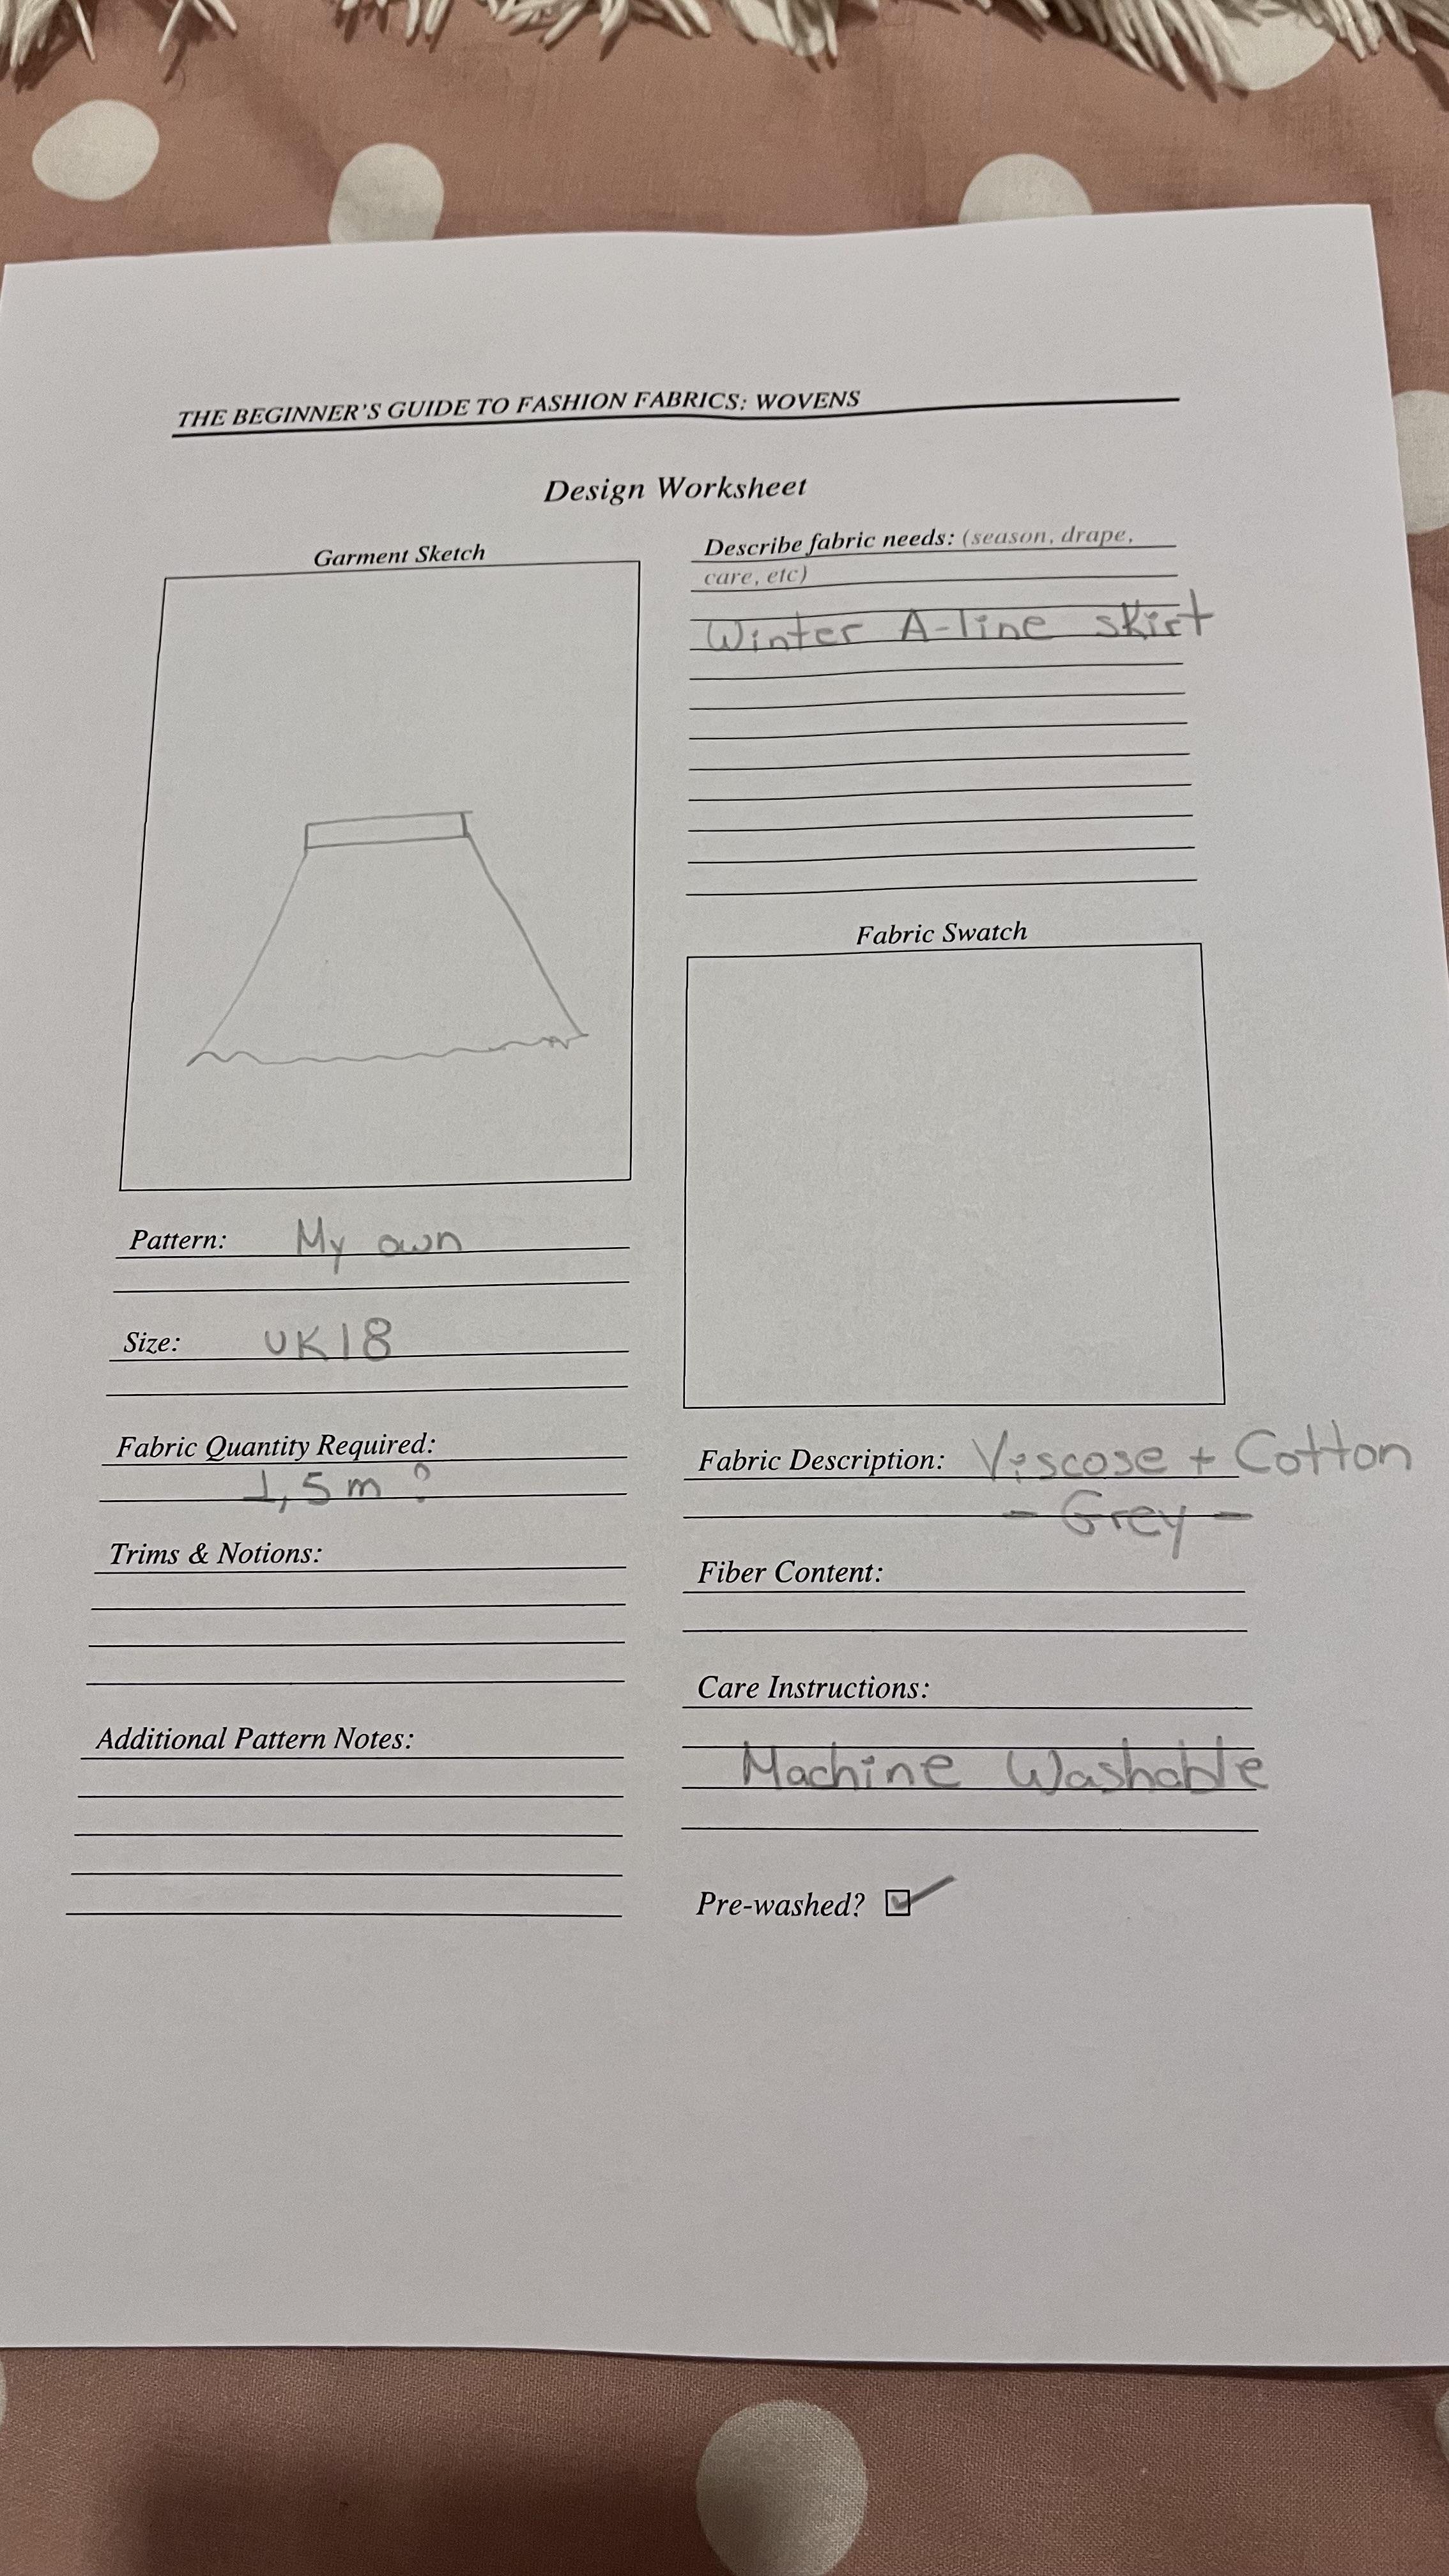 THE BEGINNER'S GUIDE TO FASHION FABRICS: WOVENS
Design Worksheet
Garment Sketch
Pattern: My own
Size: UK18
Fabric Quantity Required:
1,5m ?
Trims & Notions:
Additional Pattern Notes:
Describe fabric needs: (season, drape,
care, etc)
Winter A-line skirt
Fabric Swatch
Fabric Description: Viscose + Cotton
- Grey -
Fiber Content:
Care Instructions:
Machine Washable
Pre-washed? ✓